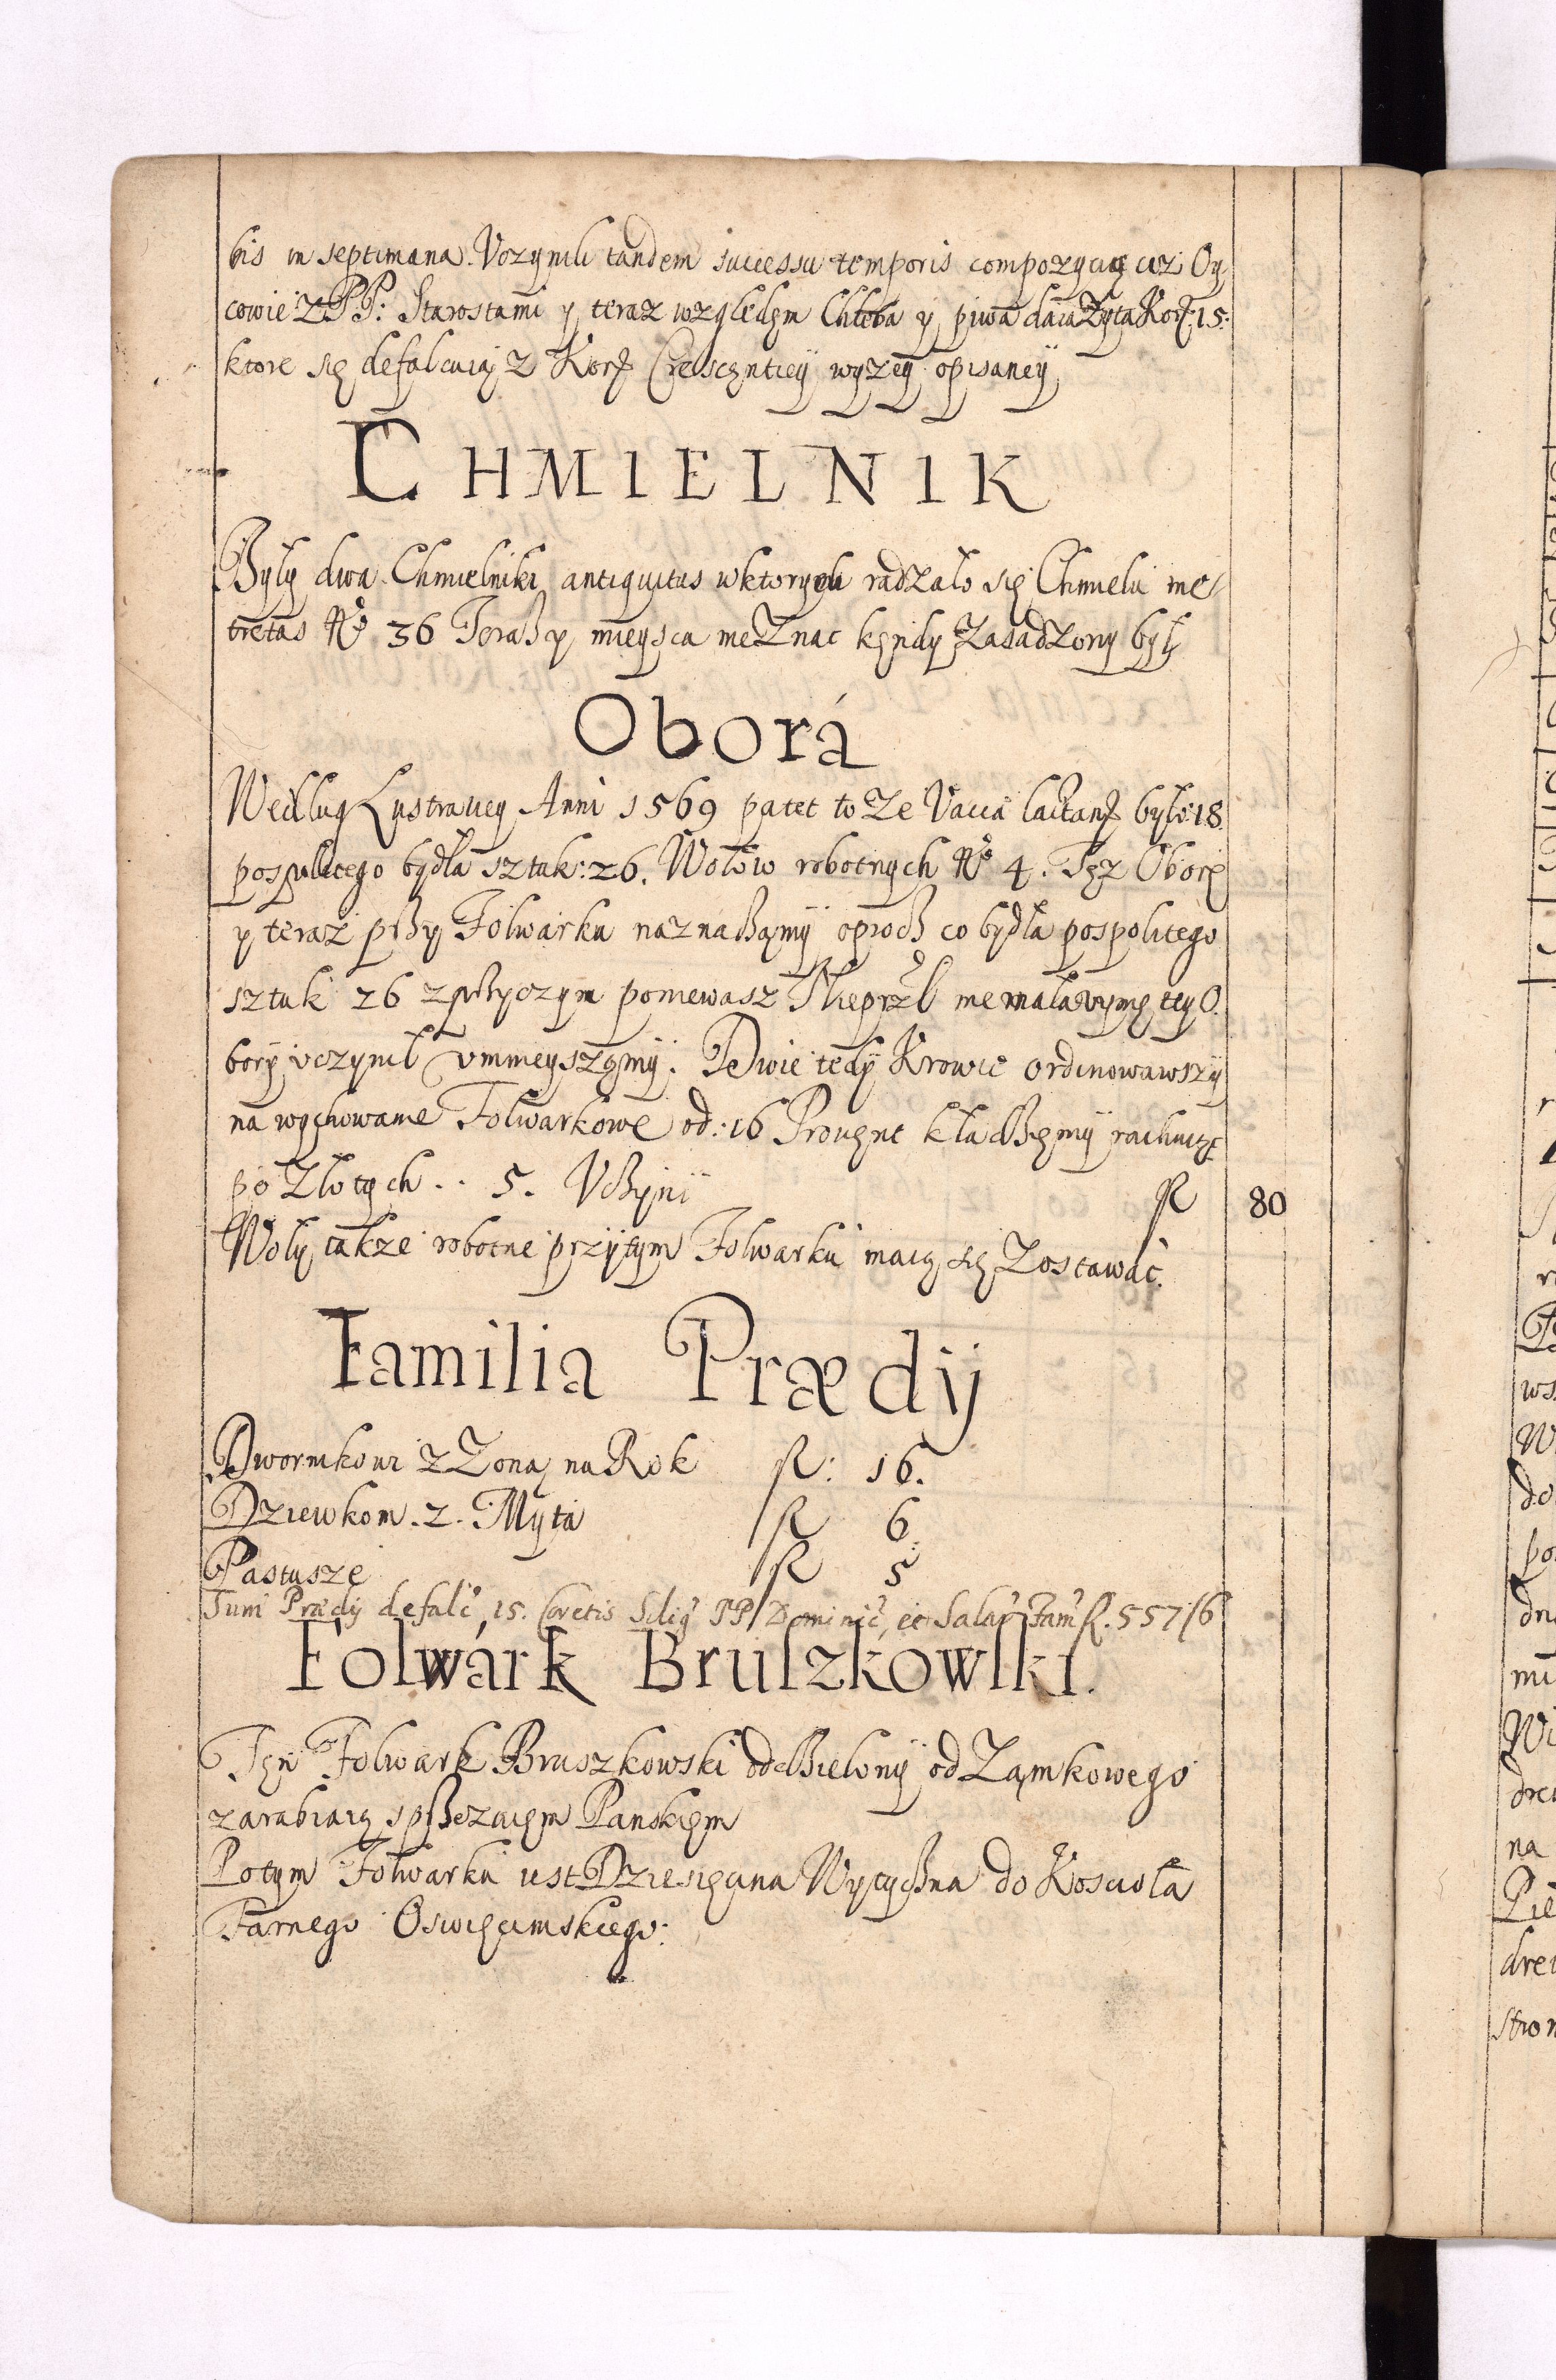 bis in septimana. Uczynili tandem successu temporis compozycią ciż Oy
cowie z PP: Starostami y teraz względem Chleba y piwa daią Zyta Kor: 15:
ktore się defalcuią z Kor Crescentiey wyzey opisaney
CHMIELNIK
Były dwa Chmielniki antiquitus w ktorych radzało się Chmielu me
tretas No 36 Teraß y mieysca nie Znac kędy Zasadzony był
Oborá
Według Lustraciey Anni 1569 patet to Ze Vacca lactan było 18
pospolitego bydła sztuk: 26. Wołow robotnych No 4. Tęż Oborę
y teraz przy Folwarku naznaczamy oprocz co bydła pospolitego
sztuk 26 z przyczyn poniewasz Nieprzl nie mała ruinę tey O.
bory uczynił vmnieyszamy. Dwie tedy Krowie ordinowawszy
na wychowanie Folwarkowe od: 16 Provent kładziemy rachuiąc
po Złotych .. 5. Vczyni fl 80
Woły takze robotne przytym Folwarku maią się Zostawać.
Familia Prædij
Dwornikowi z Zoną na Rok fl: 16.
Dziewkom. 2. Myta fl 6.
Pastusze fl 5
Sum Prædij defalc 15. Coretis Silig PP Dominic, et Salar Fam fl. 557/6
Folwárk Bruszkowski.
Ten Folwark Bruszkowski oddzielony od Zamkowego
zarabiaią sprzezaiem Panskiem
Potym Folwarku iest Dziesięcina Wytyczna do Koscioła
Farnego Oswięcimskiego: